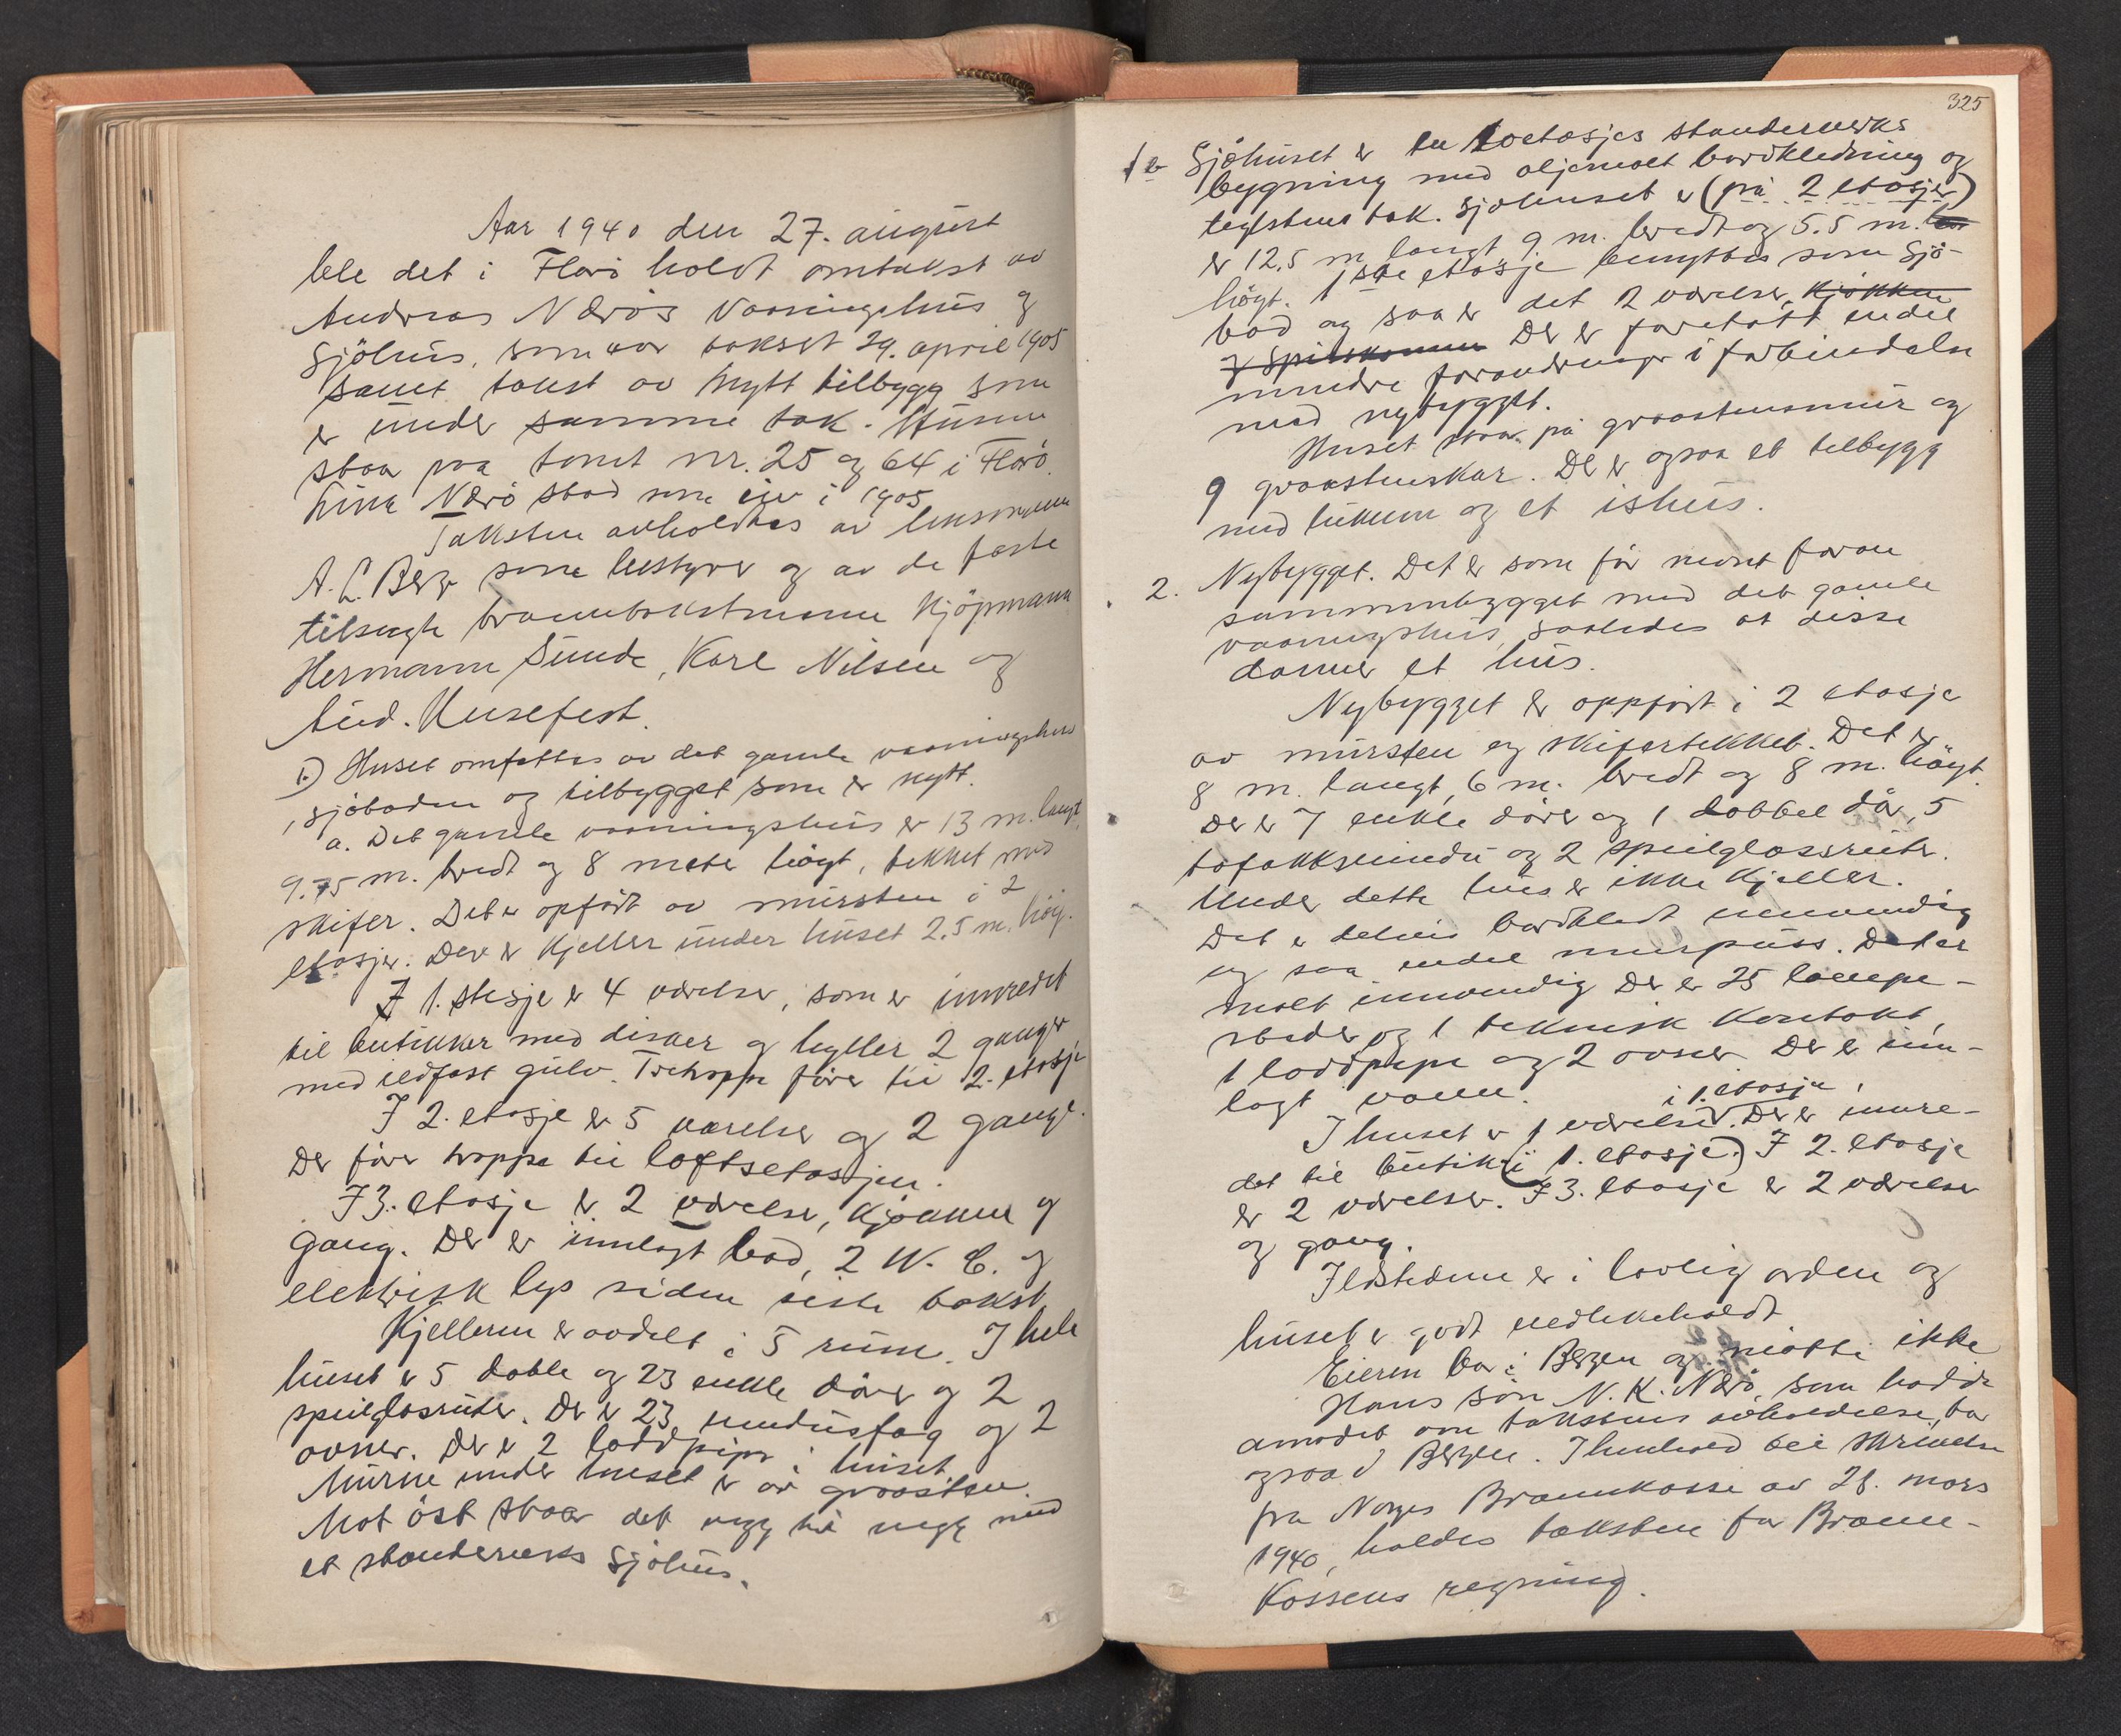 Aar 1940 den 27. august
ble det i Florö holdt omtakst av
Andreas Nærös Vaaningshus og
Sjöhus, som var takset 29. april 1905
samt takst av nytt tilbygg som
er under samme tak. Husene
staar paa tomt nr. 25 og 64 i Florö.
Nærö stod som eier i 1905
Taksten avholdtes av lensmann
A. L. Berg som bestyrer og av de faste
tilsagte branntakstmenn Kjöpmann
Hermann Sunde, Karl Nilsen og
Husefest.
1.) Huset omfattes av det gamle vaaningshus
, sjöboden og tilbygget som er nytt.
a. Det gamle vaaningshus er 13 m. langt,
9.75 m. bredt og 8 meter högt, tekket med
skifer. Det er opfört av mursten i 2
etasjer. Der er kjeller under huset 2.5 m. höy.
I 1. etasje er 4 værelser, som er innredet
til butikker med disker og hyller 2 ganger
med ildfast gulv. Tretrappe förer til 2. etasje
I 2. etasje er 5 værelser og 2 ganger.
Der förer trappe til loftsetasjen.
I 3. etasje er 2 værelser, kjökken og
gang. Der er innlagt bad, 2 W. C. og
elektrisk lys siden siste takst
Kjelleren er avdelt i 5 rum. I hele
huset er 5 doble og 23 enkle dörer og 2
speilglasruter. Der er 23 vindusfag og 2
ovner. Der er 2 loddpiper i huset
Murene under huset er av graasten.
Mot öst staar det vegg til vegg med
et standerverks Sjöhus.
325
1 b Sjöhuset er en toetasjes standerverks
bygning med oljemalt bordkledning og
teglstens tak. Sjöhuset er (på 2 etasjer)
er 12.5 m langt 9 m. bredt og 5.5 m.
högt. 1ste etasje benyttes som Sjö-
bod og saa er det 2 værelser, kjökken
og spiskammer Der er foretatt endel
mindre forandringer i forbindelse
med nybygget.
Huset staar på graastensmur og
9 graastenskar. Der er ogsaa et tilbygg
med lukum og et ishus.
2. Nybygget. Det er som för nevnt foran
sammenbygget med det gamle
vaaningshus, saaledes at disse
danner et hus.
Nybygget er oppfört i 2 etasje
av mursten og skifertekket. Det er
8 m. langt, 6 m. bredt og 8 m. högt.
Der er 7 enkle dörer og 1 dobbel dör, 5
tofaksvindu og 2 speilglassruter.
Under dette hus er ikke kjeller.
Det er delvis bordkledt innvendig
og saa endel murpuss. Det er
malt innvendig Der er 25 lampe-
steder og 1 teknisk kontakt,
1 loddpipe og 2 ovner Der er inn-
lagt vann.
I huset er 1 værelse i 1. etasje. Der er innre-
det til butikk (i 1. etasje.) I 2. etasje
er 2 værelser. I 3. etasje er 2 værelser
og gang.
Ildstedene er i lovlig orden og
huset er godt vedlikeholdt.
Eieren bor i Bergen og mötte ikke
Hans sön N. K. Nærö, som hadde
anmodet om takstens avholdelse, bor
ogsaa i Bergen. I henhold til skrivelse
fra Norges Brannkasse av 28. mars
1940, holdes taksten for Brann-
kassens regning.